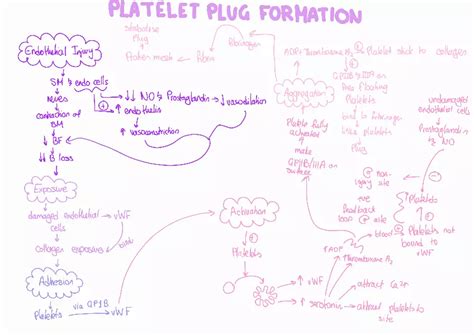 PLATELET PLUG FORMATION
Endothelial Injury
SM → endo cells
nerves
contraction of
SM
↓↓ BF
↓↓ B loss
↓↓ NO → Prostaglandin → ↓ vasodilation
↑ endothelin
↑ vasoconstriction
stabilise
Plug
Protein mesh
Fibrin
Fibrinogen
Exposure
damaged endothelial
cells
vWF
collagen exposure
binds
Adhesion
Platelets
via GP1B
vWF
Activation
Platelets
↑ vWF
↑ serotonin
attract Ca2+
attract platelets to
site
Aggregation
Platelet fully
activated
make
GPIIB/IIIA on
surface
Platelet stick to collagen
free floating
Platelets
like platelets
Plug
undamaged
endothelial cells
Prostaglandin
NO
non-
injury site
Platelets
-ve
feedback
loop
blood
Platelets
not
bound to
vWF
Thromboxane A2